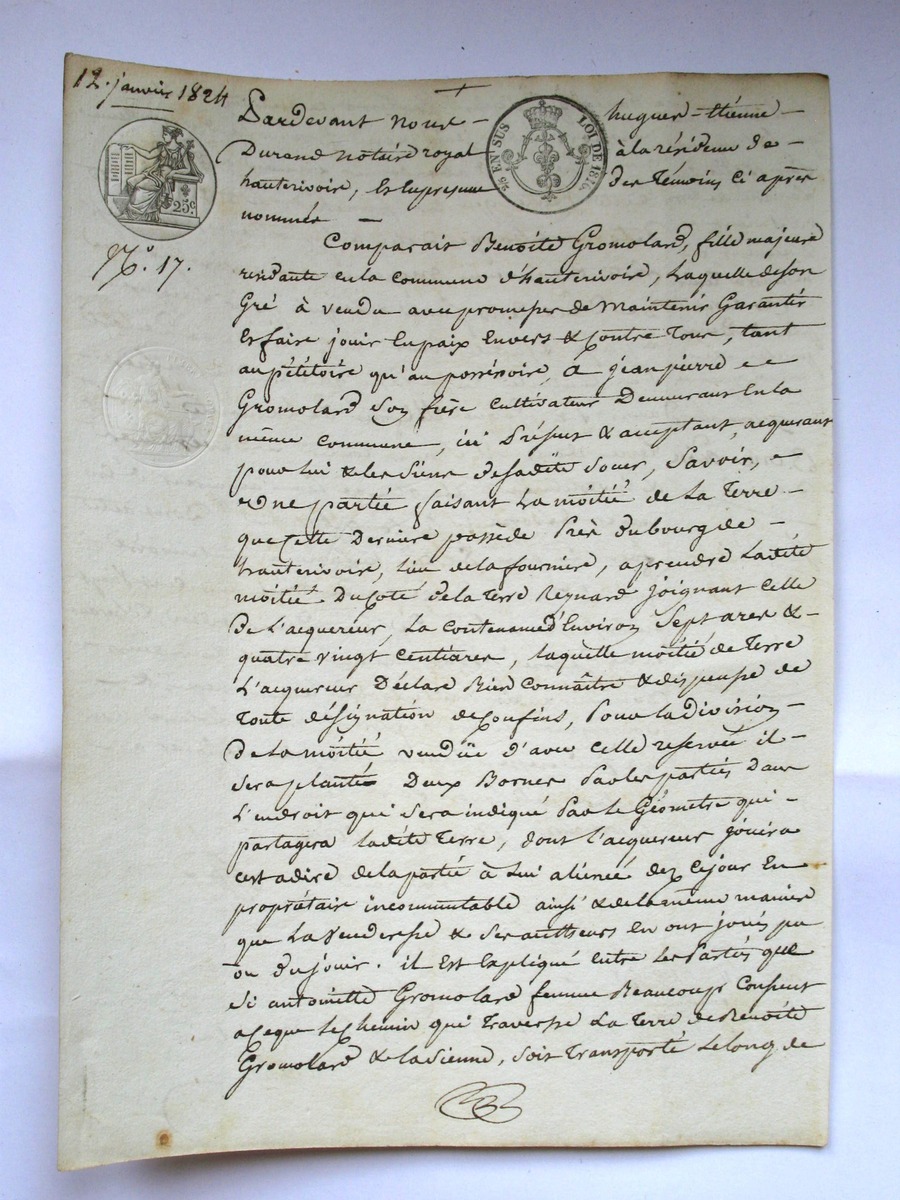 12. janvier 1824
Pardevant nous - hugues - Etienne -
25 EN SUS LOI DE 1816
Durand notaire royal à la résidence de -
hauterivoire, & en presence des témoins ci après
25c.
nommés -
N.° 17.
Comparait Benoite Gromolard, fille majeure
residante en la commune d'hauterivoire, laquelle de son
Gré à vendu avec promesse de Maintenir Garantir
et faire jouir en paix Envers & Contre Tous, tant
au pétitoire qu'au possessoire, à jean pierre
Gromolard Son frère Cultivateur Demeurant en la
même commune, ici Présent & acceptant, acquerant
pour lui & les Siens de sadite Soeur, Savoir,
une partie faisant la moitié de la Terre -
que cette Derniere possède Près du bourg de -
hauterivoire, lieu de la fourniere, a prendre ladite
moitié Du Coté de la Terre Reynard joignant celle
de L'acquereur, la Contenance d'Environ Sept ares &
quatre vingt Centiares, laquelle moitié de Terre
L'acquereur Déclare Bien Connaître & dispense de
Toute désignation de Confins, Pour la division
de la moitié vendüe d'avec celle reservée il -
Sera planté Deux Bornes Par les parties Dans
L'endroit qui Sera indiqué Par le Géometre qui -
partagera ladite Terre, dont l'acquereur jouira
cest adire de la partie à lui alienée dez ce jour En
propriétaire incommutable ainsi & de la même maniere
que la Venderesse & Ses autheurs en ont jouis pu
ou du jouir. il Est Expliqué Entre les Parties que
Si antoinette Gromolard femme Beaucoup Consent
a ce que le Chemin qui Traverse la Terre de Benoite
Gromolard & la Sienne, soit Transporté le long de